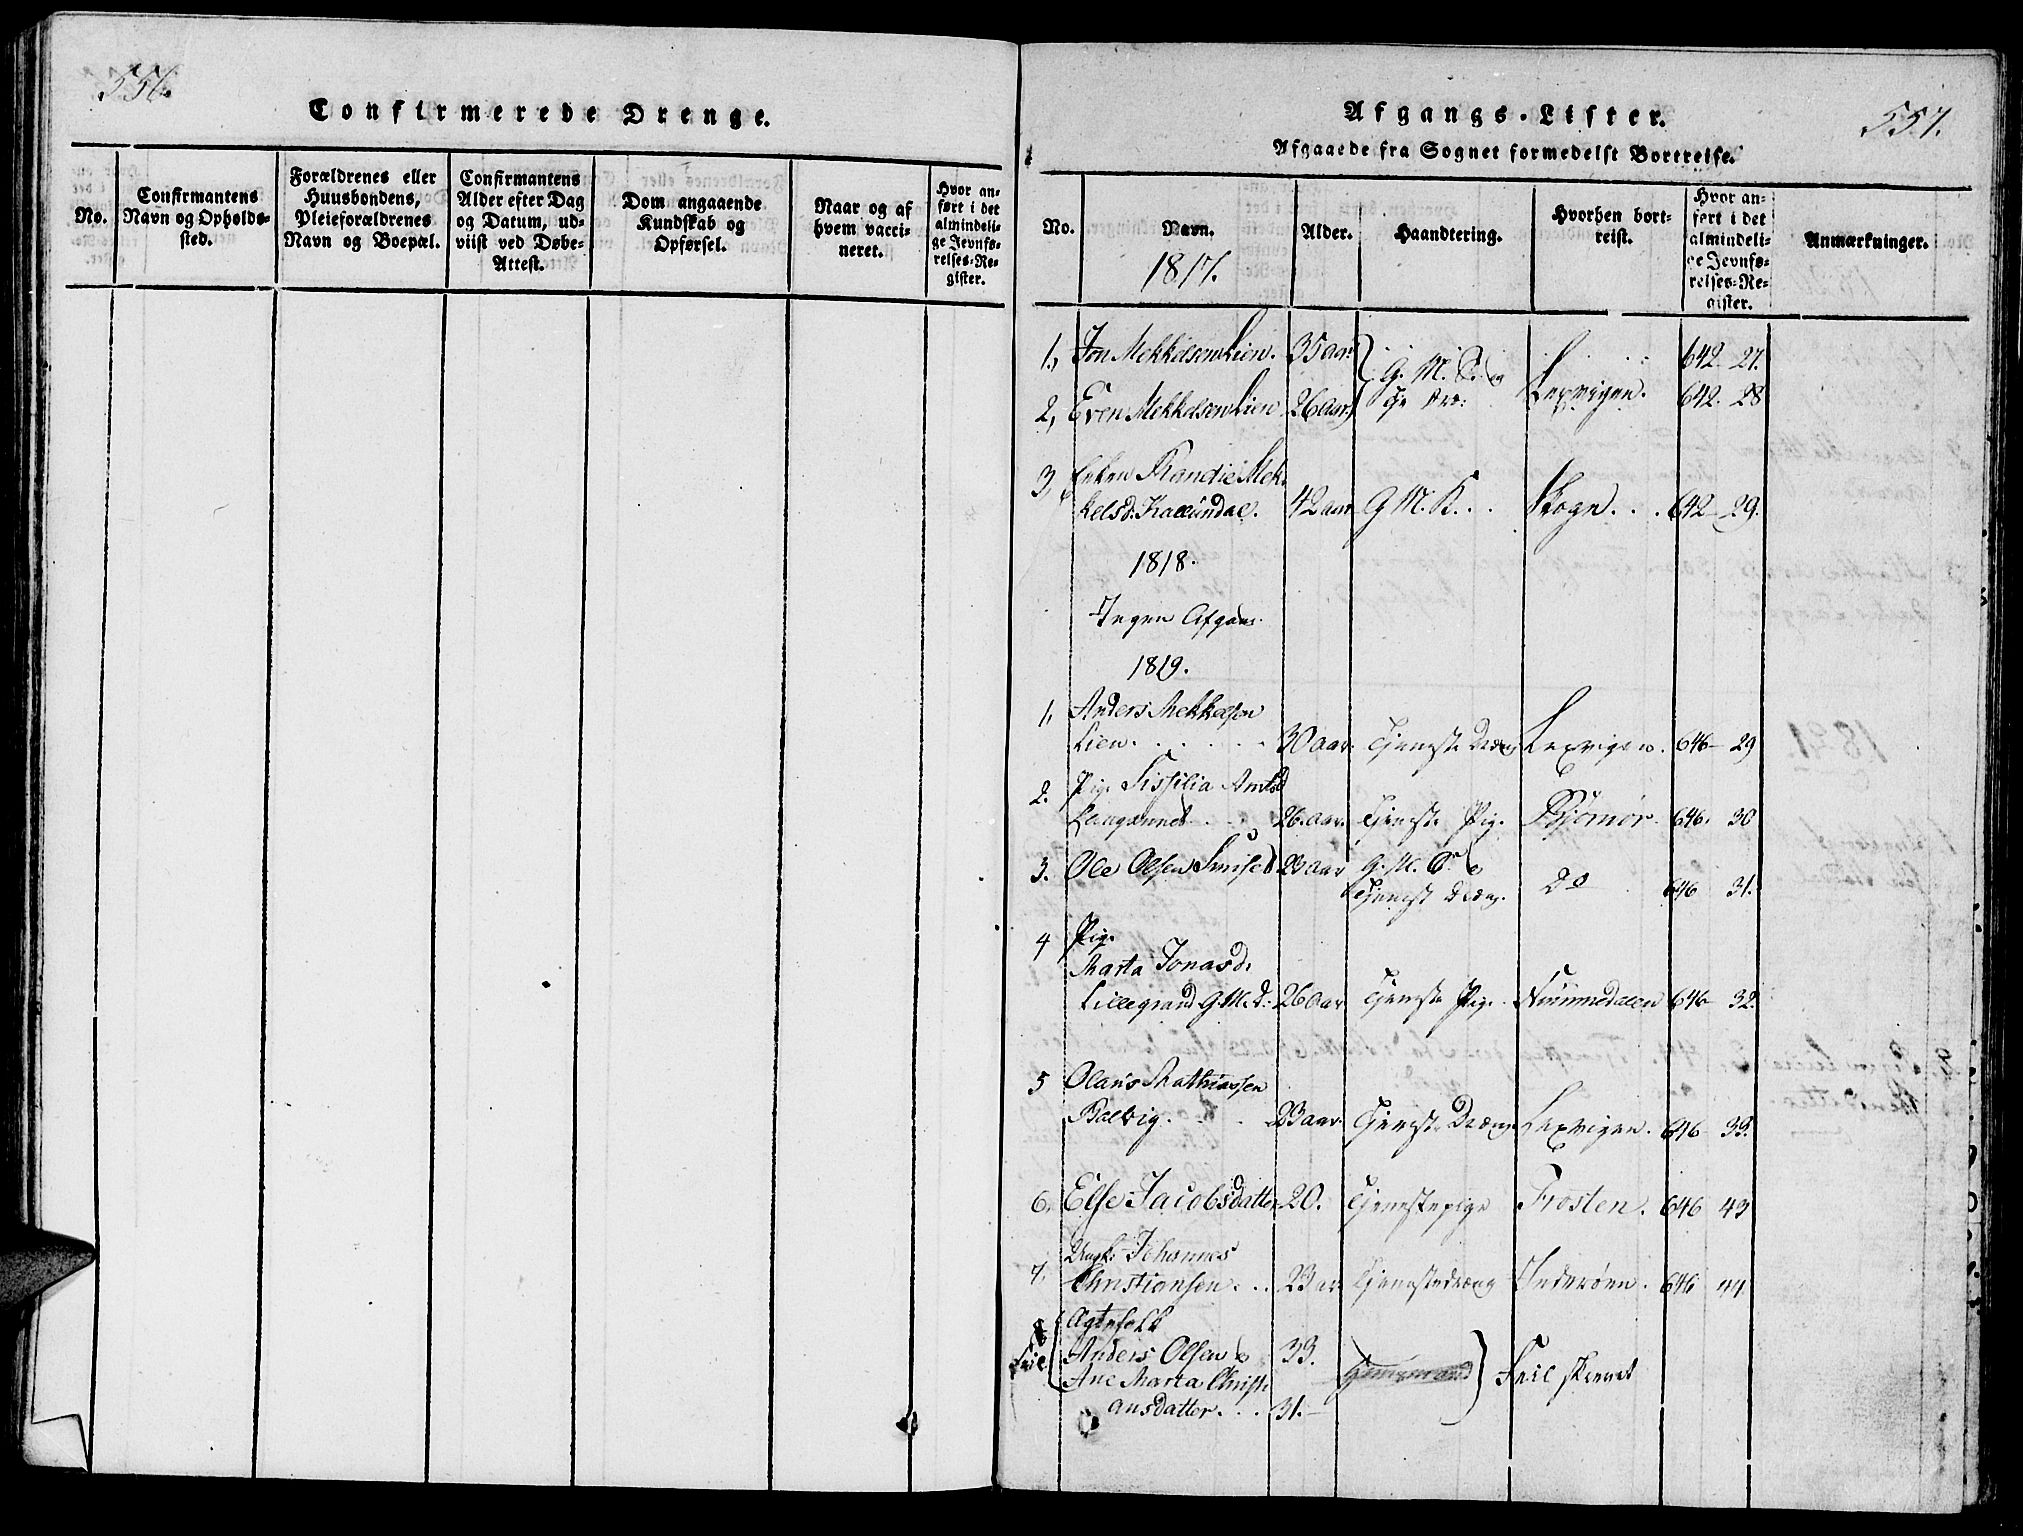 556.
Confirmerede Drenge.
No.
Confirmantens
Navn og Opholds-
sted.
Forældrenes eller
Huusbondens,
Pleieforældrenes
Navn og Boepæl.
Confirmantens
Alder efter Dag
og Datum, ud-
viist ved Døbe-
Attest.
Dom angaaende
Kundskab og
Opførsel.
Naar og af
hvem vacci-
neret.
Hvor an-
ført i det
almindeli-
ge Jevnfø-
relses-Re-
gister.
557.
Afgangs-Lister.
Afgaaede fra Sognet formedelst Bortreise.
No.
Navn.
1817.
Alder.
Haandtering.
Hvorhen bort-
reist.
Hvor an-
ført i det
almindeli-
ge Jevnfø-
relses-Re-
gister.
Anmærkninger.
1, Jon Mekkelsen Lien. 35 aar 642. 27.
G. M. S. og
2, Even Mekkelsen Lien 26 aar Lexvigen. 642. 28
3, Enken Randie Mek-
kelsd. Kaldundal. 42 aar G M. K. Skogn. 642 29.
1818.
Ingen Afgang
1819.
1, Anders Mekkelsen
Lien. 30 aar. Tjeneste Dræng Lexvigen. 646 29
2. Pig. Sissilia
26. aar. Tjeneste Pig. 646. 30
3. Ole Olsen 23 aar G. M. S.
Tjenest Dræng. Do 646 31.
4 Pig.
Marta Jonasd.
Lillegrand G. M. d. 26 aar Tjeneste Pig. Nummedalen 646 32.
5 Olaus Mathiassen
23 aar Tjeneste Dræng Lexvigen. 646 33.
6. Else Jacobsdatter 20. Tjenestepige Frosten. 646 43
7. Ungk. Johannes
Christiansen. 23 ar Tjenestedræng Inderöen. 646 44
8 Ægtefolk
Feil Anders Olsen 33. Feil skrevet
Ane Marta Christi-
ansdatter. 31.